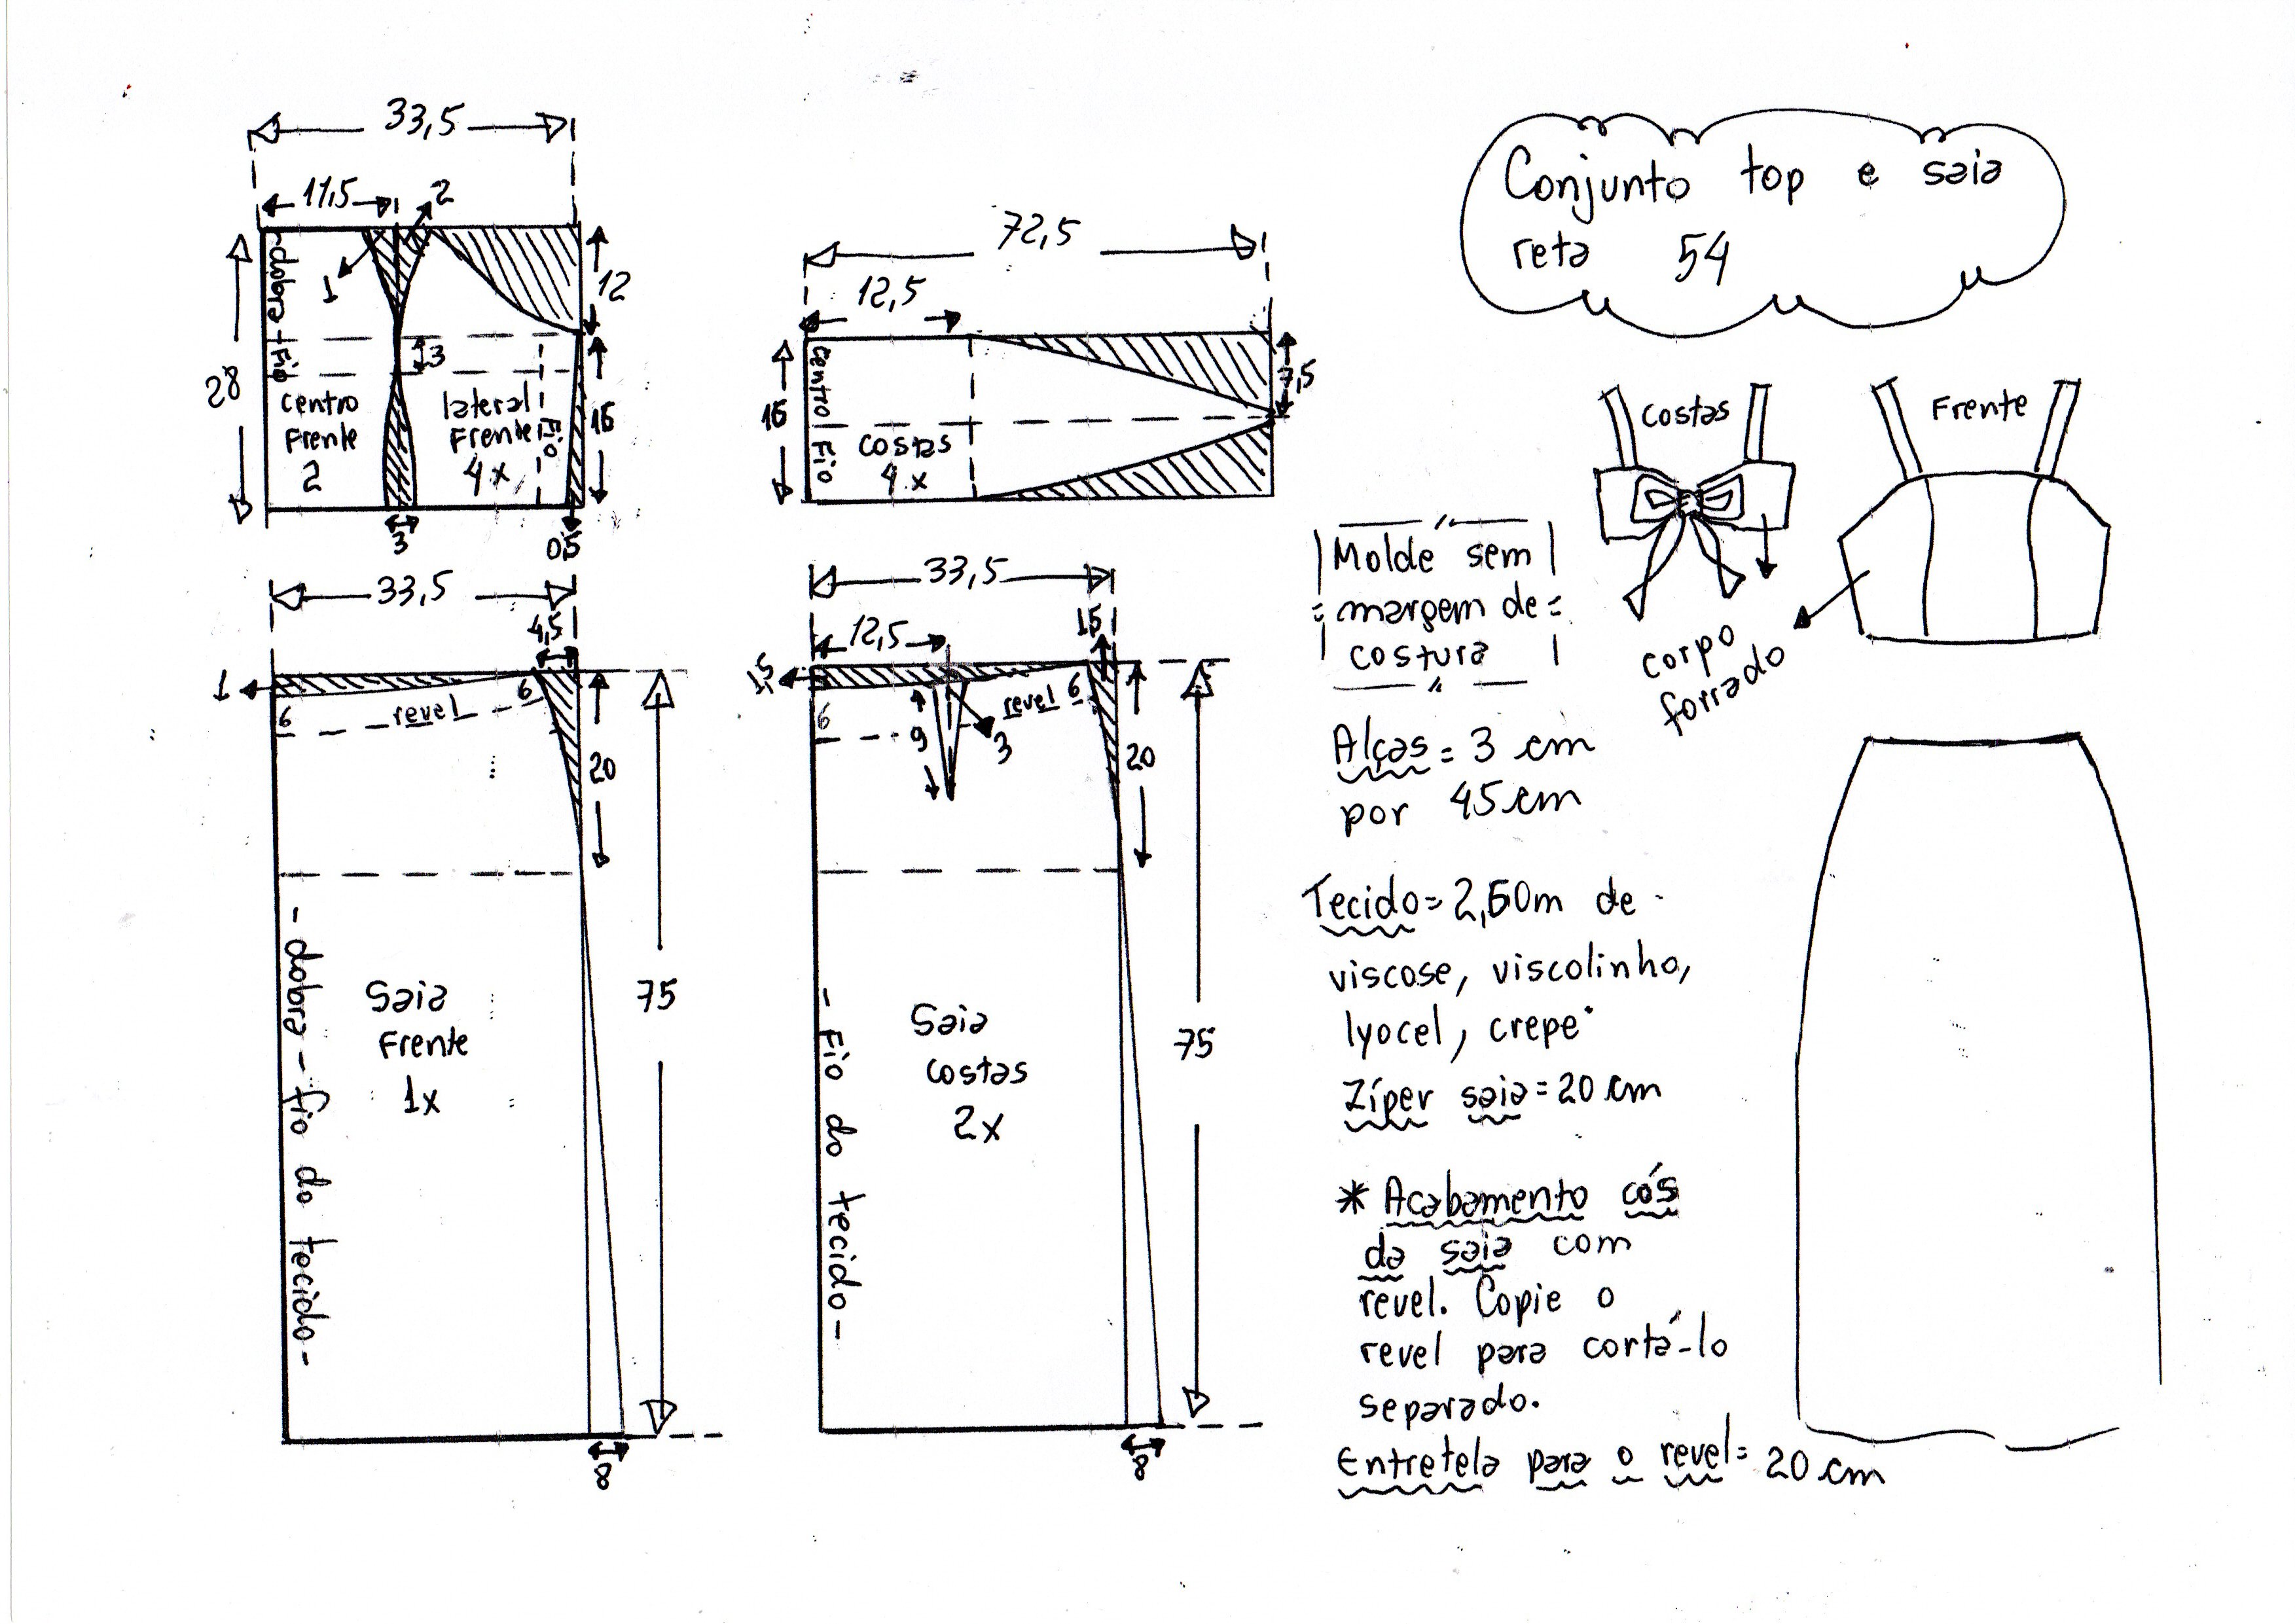 33,5
11,5
2
1
dobra - Fio
28
12
3
16
centro
Frente
2
lateral
Frente
4x
Fio
3
0,5
72,5
12,5
Centro Fio
16
costas
4x
7,5
Conjunto top e saia
reta 54
Costas
Frente
corpo
forrado
Molde sem
margem de
costura
Alças = 3 cm
por 45 cm
Tecido = 2,50m de
viscose, viscolinho,
lyocel, crepe
Zíper saia = 20 cm
* Acabamento cós
da saia com
revel. Copie o
revel para cortá-lo
separado.
Entretela para o revel = 20 cm
33,5
4,5
1
6
revel
6
20
75
- dobra - fio do tecido -
Saia
Frente
1x
8
33,5
12,5
1,5
6
9
3
revel
6
20
75
- Fio do tecido -
Saia
costas
2x
8